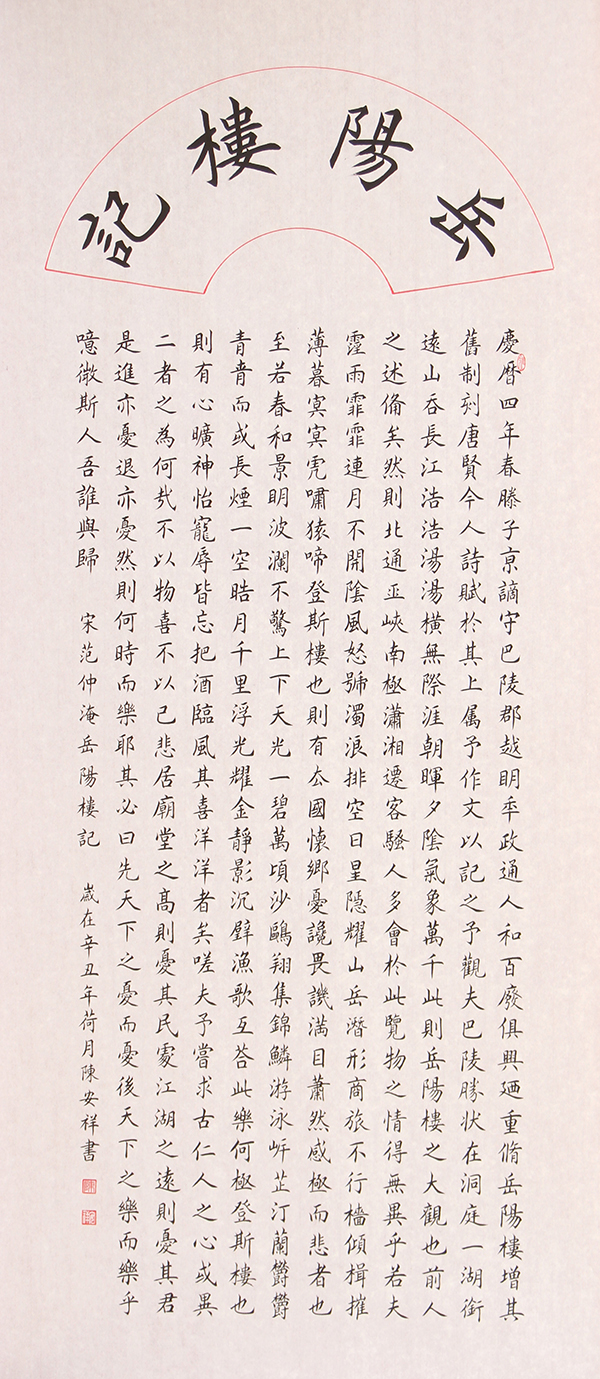 岳陽樓記
慶曆四年春滕子亰謫守巴陵郡越眀秊政通人和百廢俱興廼重脩岳陽樓增其
舊制刻唐賢今人詩賦於其上属予作文以記之予觀夫巴陵勝狀在洞庭一湖銜
遠山吞長江浩浩湯湯橫無際涯朝暉夕陰氣象萬千此則岳陽樓之大觀也前人
之述俻矣然則北通巫峽南極瀟湘遷客騷人多會於此覽物之情得無異乎若夫
霪雨霏霏連月不開陰風怒號濁浪排空日星隱耀山岳潛形商旅不行檣傾楫摧
薄暮冥冥虎嘯猿啼登斯樓也則有去國懷鄉憂讒畏譏滿目蕭然感極而悲者也
至若春和景明波瀾不驚上下天光一碧萬頃沙鷗翔集錦鱗游泳岸芷汀蘭欝欝
青青而或長煙一空皓月千里浮光耀金靜影沉璧漁歌互荅此樂何極登斯樓也
則有心曠神怡寵辱皆忘把酒臨風其喜洋洋者矣嗟夫予嘗求古仁人之心或異
二者之為何哉不以物喜不以己悲居廟堂之髙則憂其民處江湖之遠則憂其君
是進亦憂退亦憂然則何時而樂耶其必曰先天下之憂而憂後天下之樂而樂乎
噫微斯人吾誰與歸 宋范仲淹岳陽樓記 歲在辛丑年荷月陳安祥書